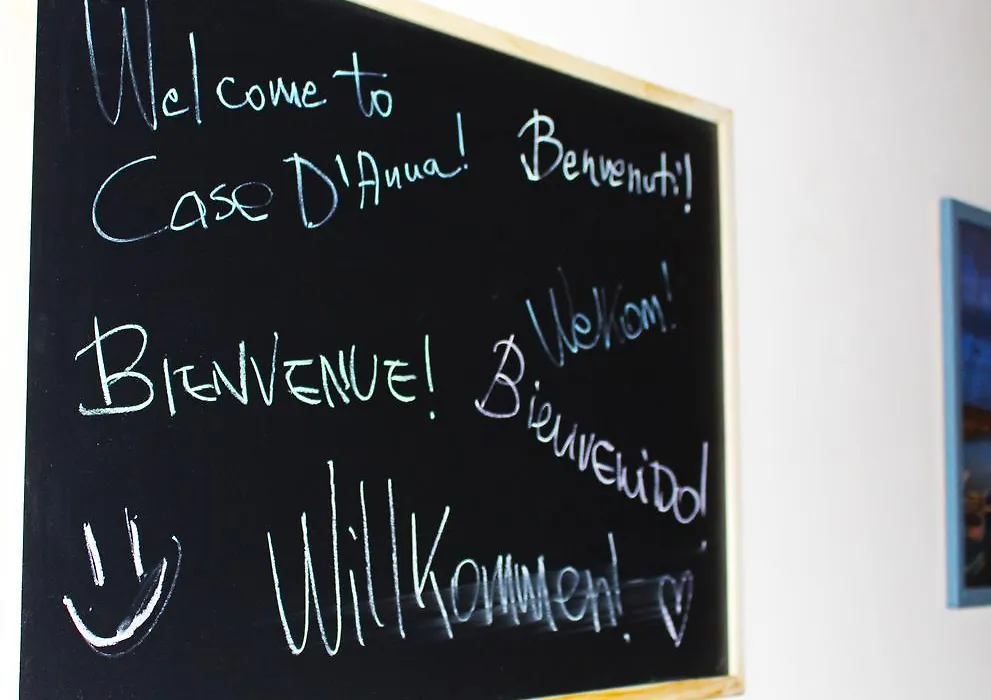 Welcome to
Case D'Anna!
Benvenuti!
Welkom!
BIENVENUE!
BienvEniDo!
Willkommen!